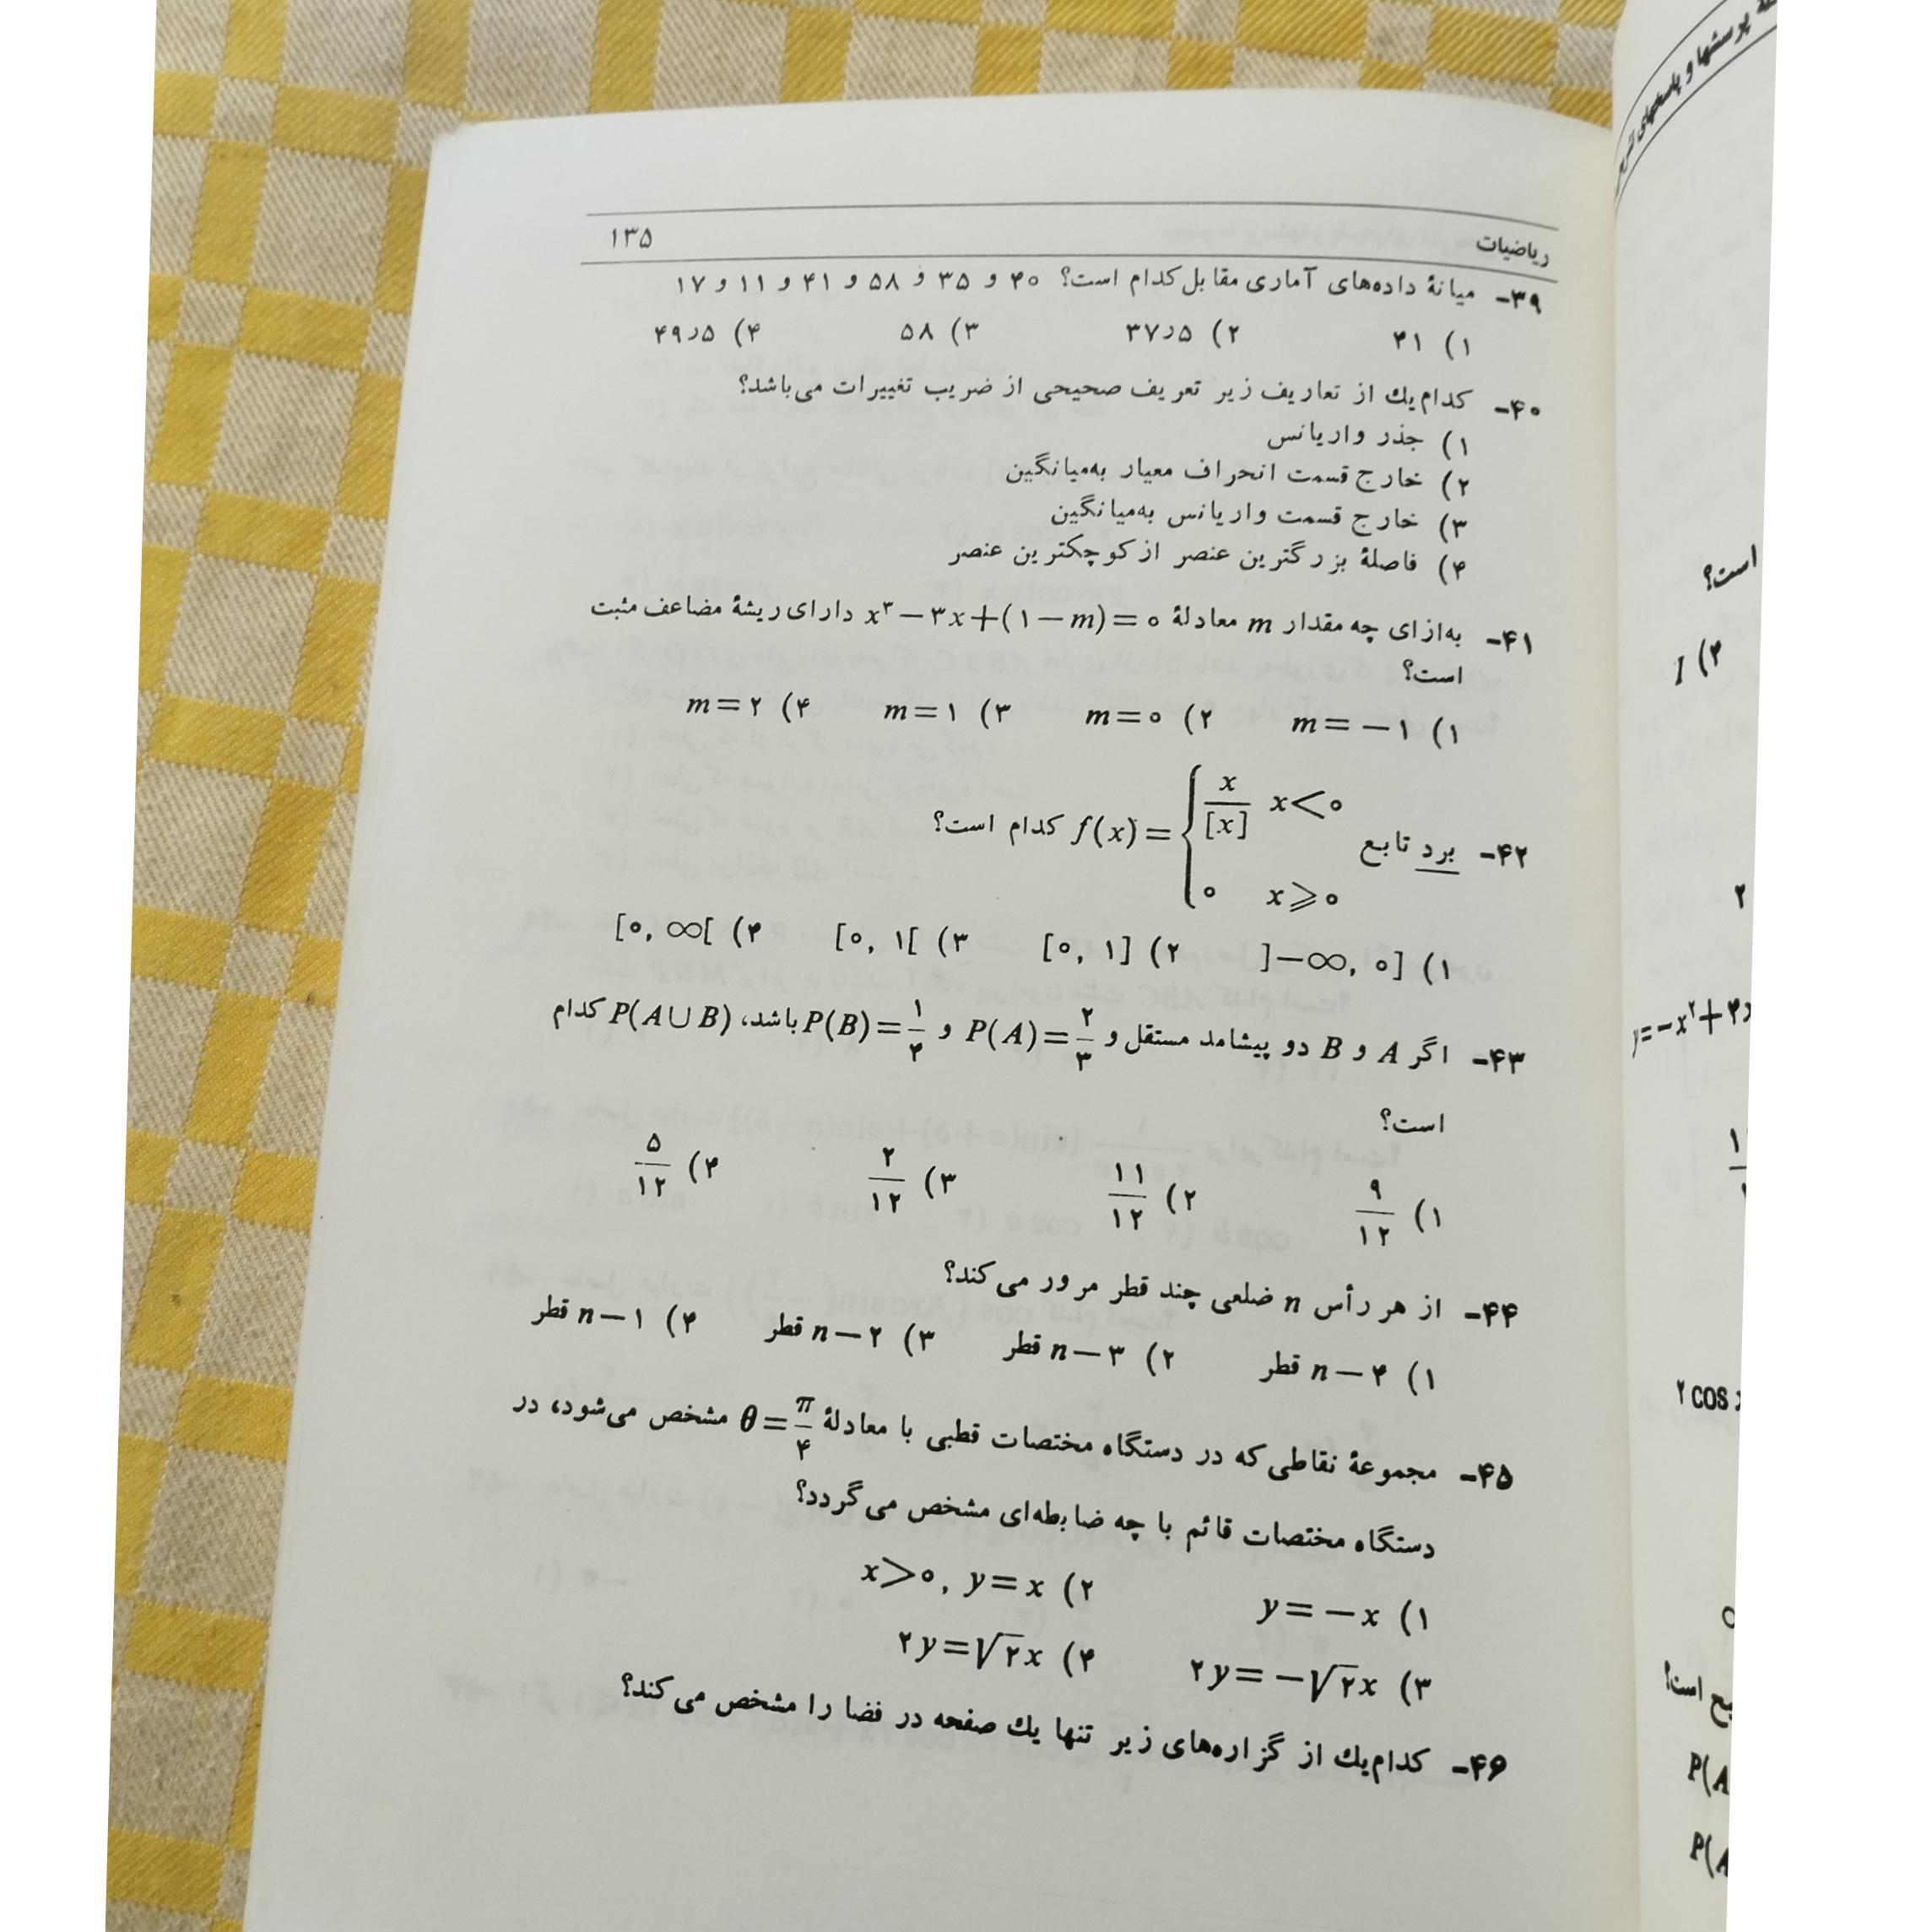 ریاضیات ۱۳۵
۳۹- میانهٔ داده‌های آماری مقابل کدام است؟ ۴۰ و ۳۵ و ۵۸ و ۴۱ و ۱۱ و ۱۷
۱) ۴۱ ۲) ۳۷٫۵ ۳) ۵۸ ۴) ۴۹٫۵
۴۰- کدام‌یك از تعاریف زیر تعریف صحیحی از ضریب تغییرات می‌باشد؟
۱) جذر واریانس
۲) خارج قسمت انحراف معیار به‌میانگین
۳) خارج قسمت واریانس به‌میانگین
۴) فاصلهٔ بزرگترین عنصر از کوچکترین عنصر
۴۱- به‌ازای چه مقدار m معادلهٔ x³−۳x+(۱−m)=۰ دارای ریشهٔ مضاعف مثبت
است؟
۱) m=−۱ ۲) m=۰ ۳) m=۱ ۴) m=۲
۴۲- برد تابع f(x)={x/[x] x<۰ ; ۰ x⩾۰ کدام است؟
۱) ]−∞, ۰] ۲) [۰, ۱] ۳) [۰, ۱[ ۴) [۰, ∞[
۴۳- اگر A و B دو پیشامد مستقل و P(A)=۲/۳ و P(B)=۱/۴ باشد، P(A∪B) کدام
است؟
۱) ۹/۱۲ ۲) ۱۱/۱۲ ۳) ۲/۱۲ ۴) ۵/۱۲
۴۴- از هر رأس n ضلعی چند قطر مرور می‌کند؟
۱) n−۴ قطر ۲) n−۳ قطر ۳) n−۲ قطر ۴) n−۱ قطر
۴۵- مجموعهٔ نقاطی که در دستگاه مختصات قطبی با معادلهٔ θ=π/۴ مشخص می‌شود، در
دستگاه مختصات قائم با چه ضابطه‌ای مشخص می‌گردد؟
۱) y=−x ۲) x>۰, y=x
۳) ۲y=−√۲x ۴) ۲y=√۲x
۴۶- کدام‌یك از گزاره‌های زیر تنها یك صفحه در فضا را مشخص می‌کند؟
پرسشها و پاسخهای
است؟
۲
y=−x²+۴x
۲cos
است؟
P(A
P(A